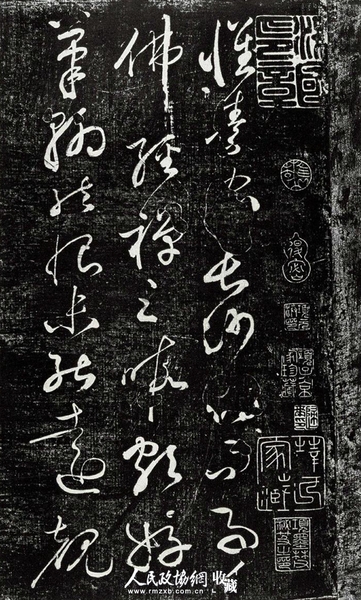 懷素家長沙幼而事
佛經禪之暇頗好
筆翰然恨未能遠覩
項子京家珍藏
人民政協網 收藏
www.rmzxb.com.cn